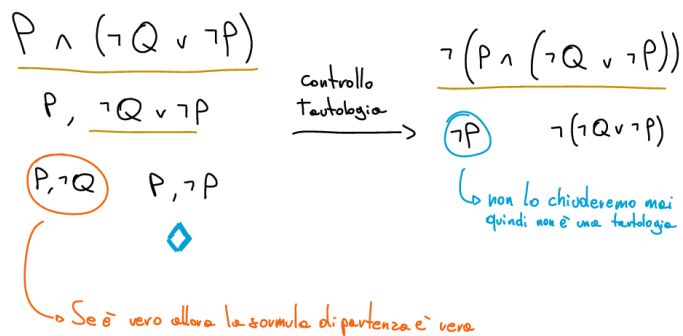 P ∧ (¬Q ∨ ¬P)
P, ¬Q ∨ ¬P
P,¬Q
P,¬P
Se è vero allora la formula di partenza è vera
controllo
Tautologia
¬(P ∧ (¬Q ∨ ¬P))
¬P
¬(¬Q ∨ ¬P)
non lo chiuderemo mai
quindi non è una tautologia